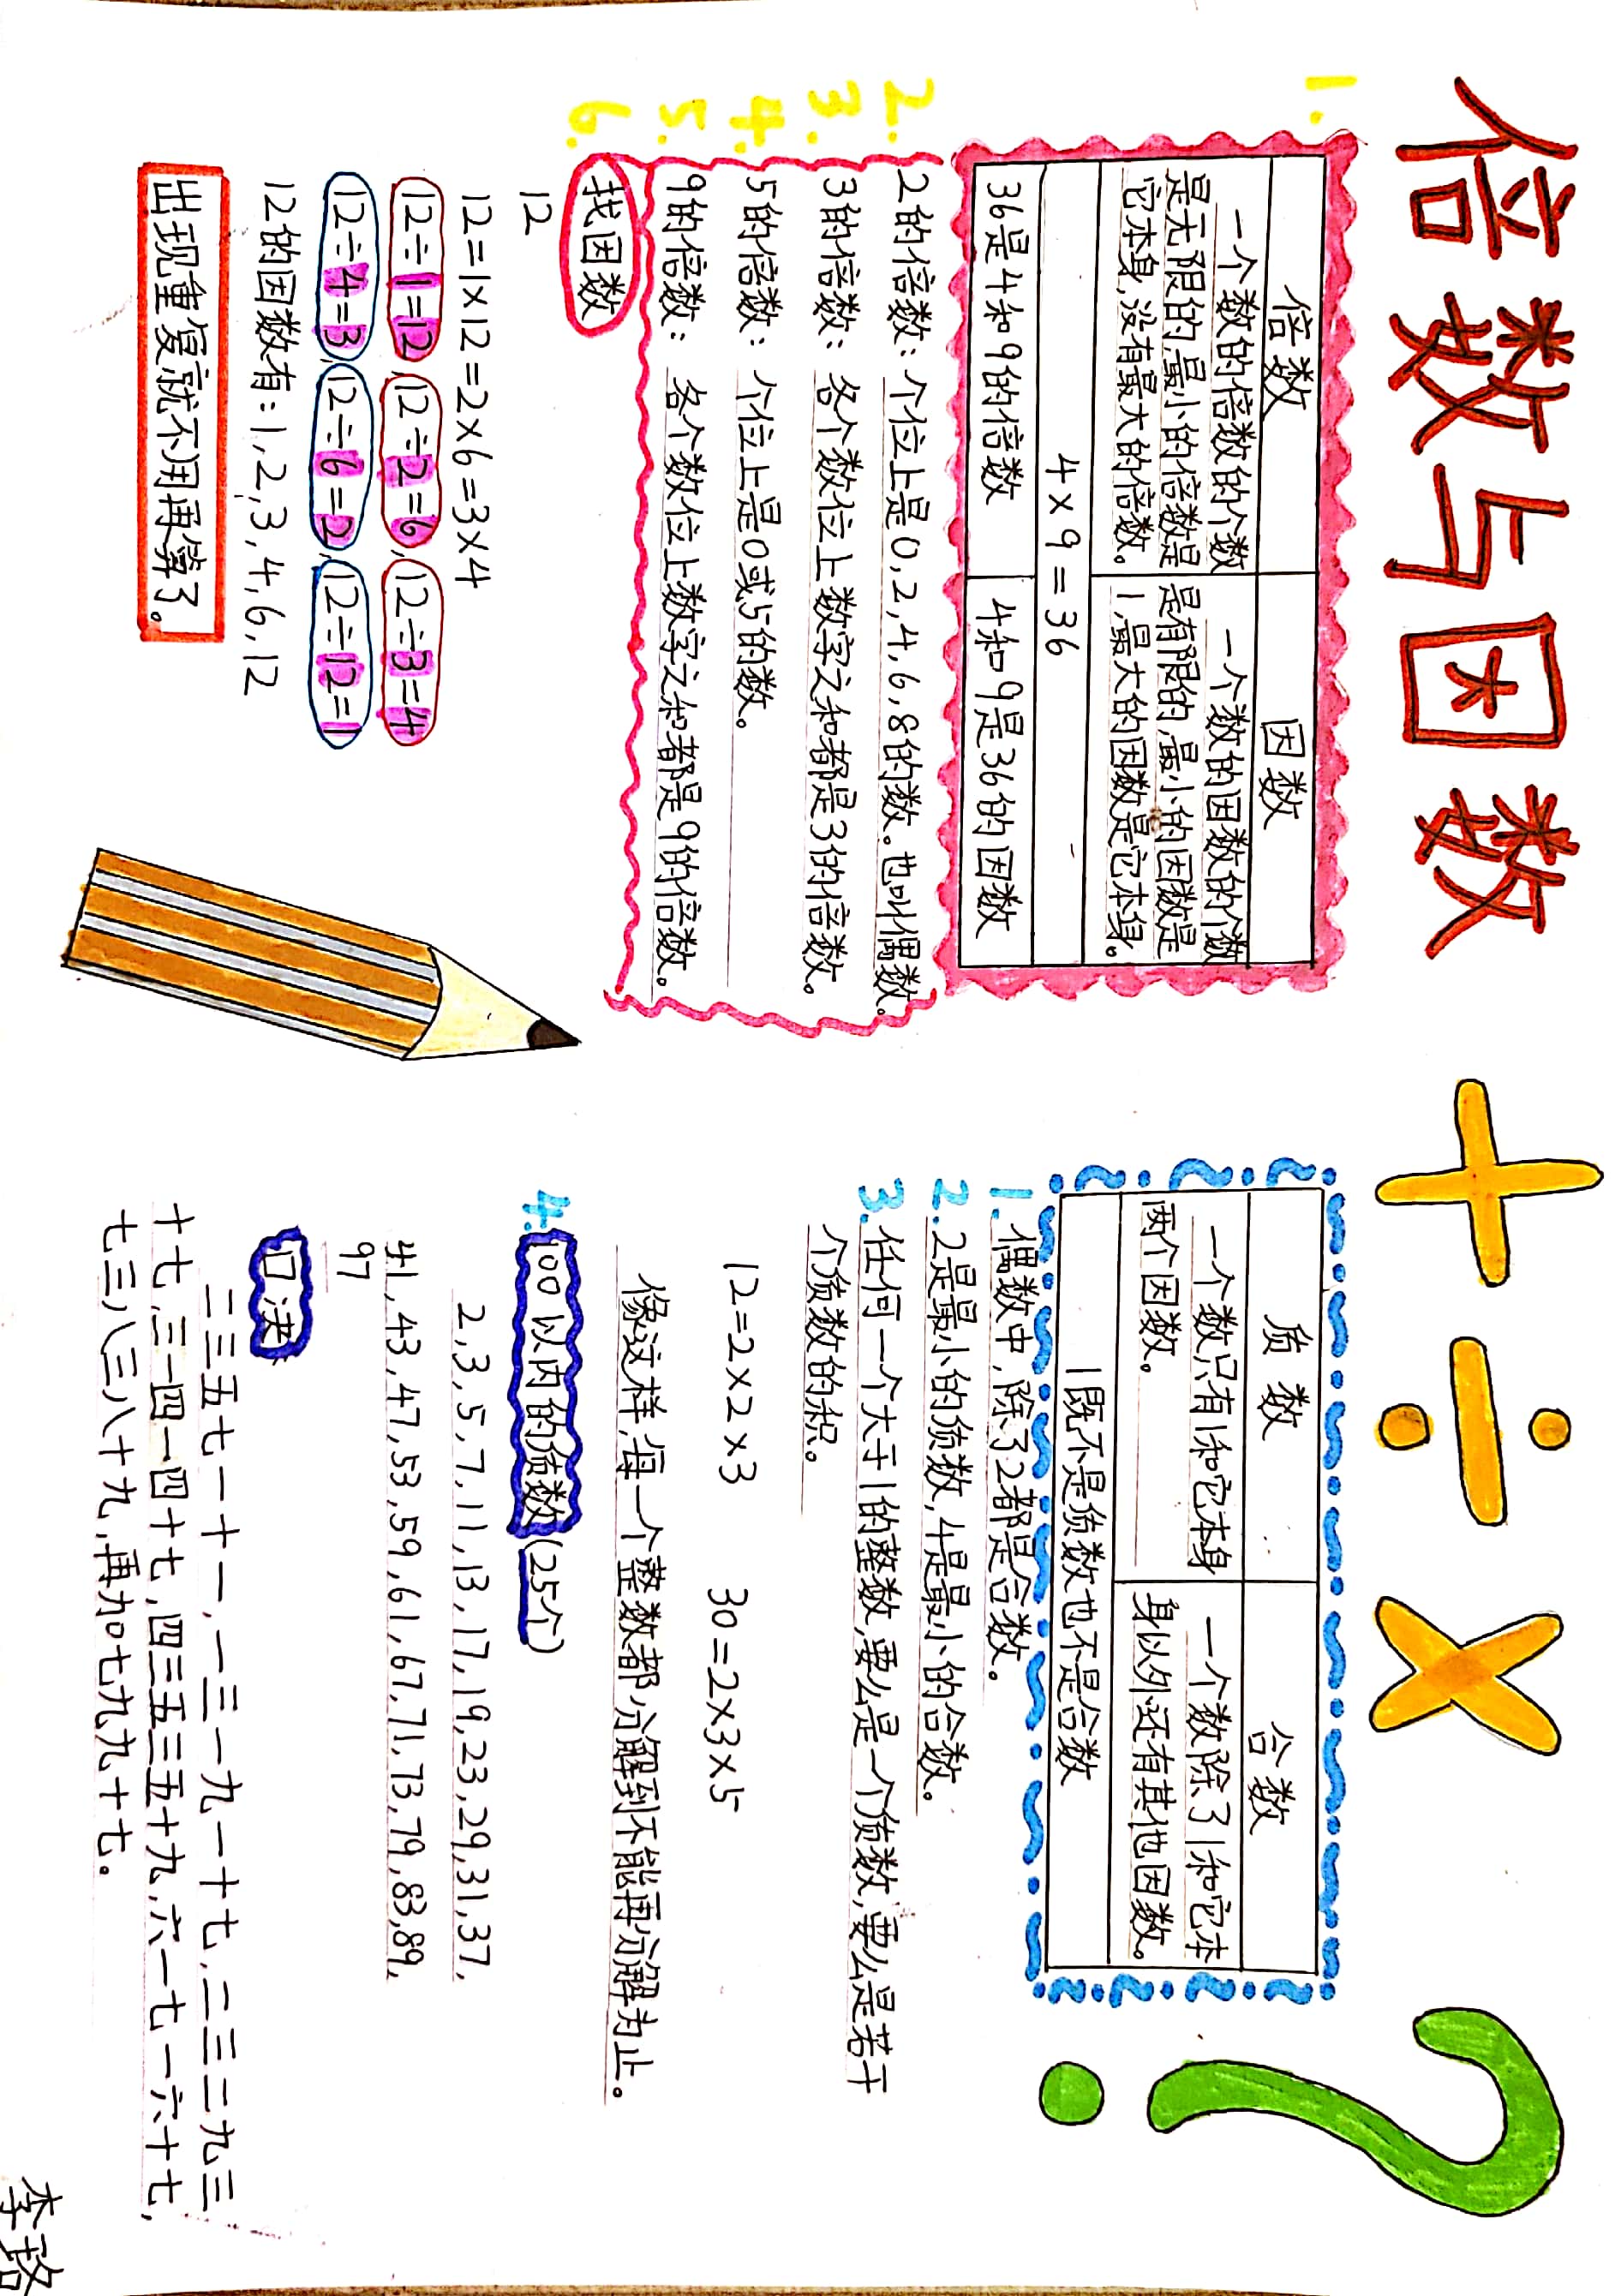 倍数与因数
+ ÷ × ?
1.
倍数 因数
一个数的倍数的个数是无限的,最小的倍数是它本身,没有最大的倍数。
一个数的因数的个数是有限的,最小的因数是1,最大的因数是它本身。
4×9=36
36是4和9的倍数 4和9是36的因数
2. 2的倍数:个位上是0,2,4,6,8的数。也叫偶数。
3. 3的倍数:各个数位上数字之和都是3的倍数。
4. 5的倍数:个位上是0或5的数。
5. 9的倍数:各个数位上数字之和都是9的倍数。
6. 找因数
12
12=1×12=2×6=3×4
12÷1=12,12÷2=6,12÷3=4
12÷4=3,12÷6=2,12÷12=1
12的因数有:1,2,3,4,6,12
出现重复就不用再算了。
质数 合数
一个数只有1和它本身两个因数。
一个数除了1和它本身以外还有其他因数。
1既不是质数也不是合数
1. 偶数中,除了2都是合数。
2. 2是最小的质数,4是最小的合数。
3. 任何一个大于1的整数,要么是一个质数,要么是若干
个质数的积。
12=2×2×3 30=2×3×5
像这样,每一个整数都分解到不能再分解为止。
4. 100以内的质数(25个)
2,3,5,7,11,13,17,19,23,29,31,37,
41,43,47,53,59,61,67,71,73,79,83,89,
97
口决
二三五七一十一,一三一九一十七,二三二九三
十七,三一四一四十七,四三五三五十九,六一七一六十七,
七三八三八十九,再加七九九十七。
李璐